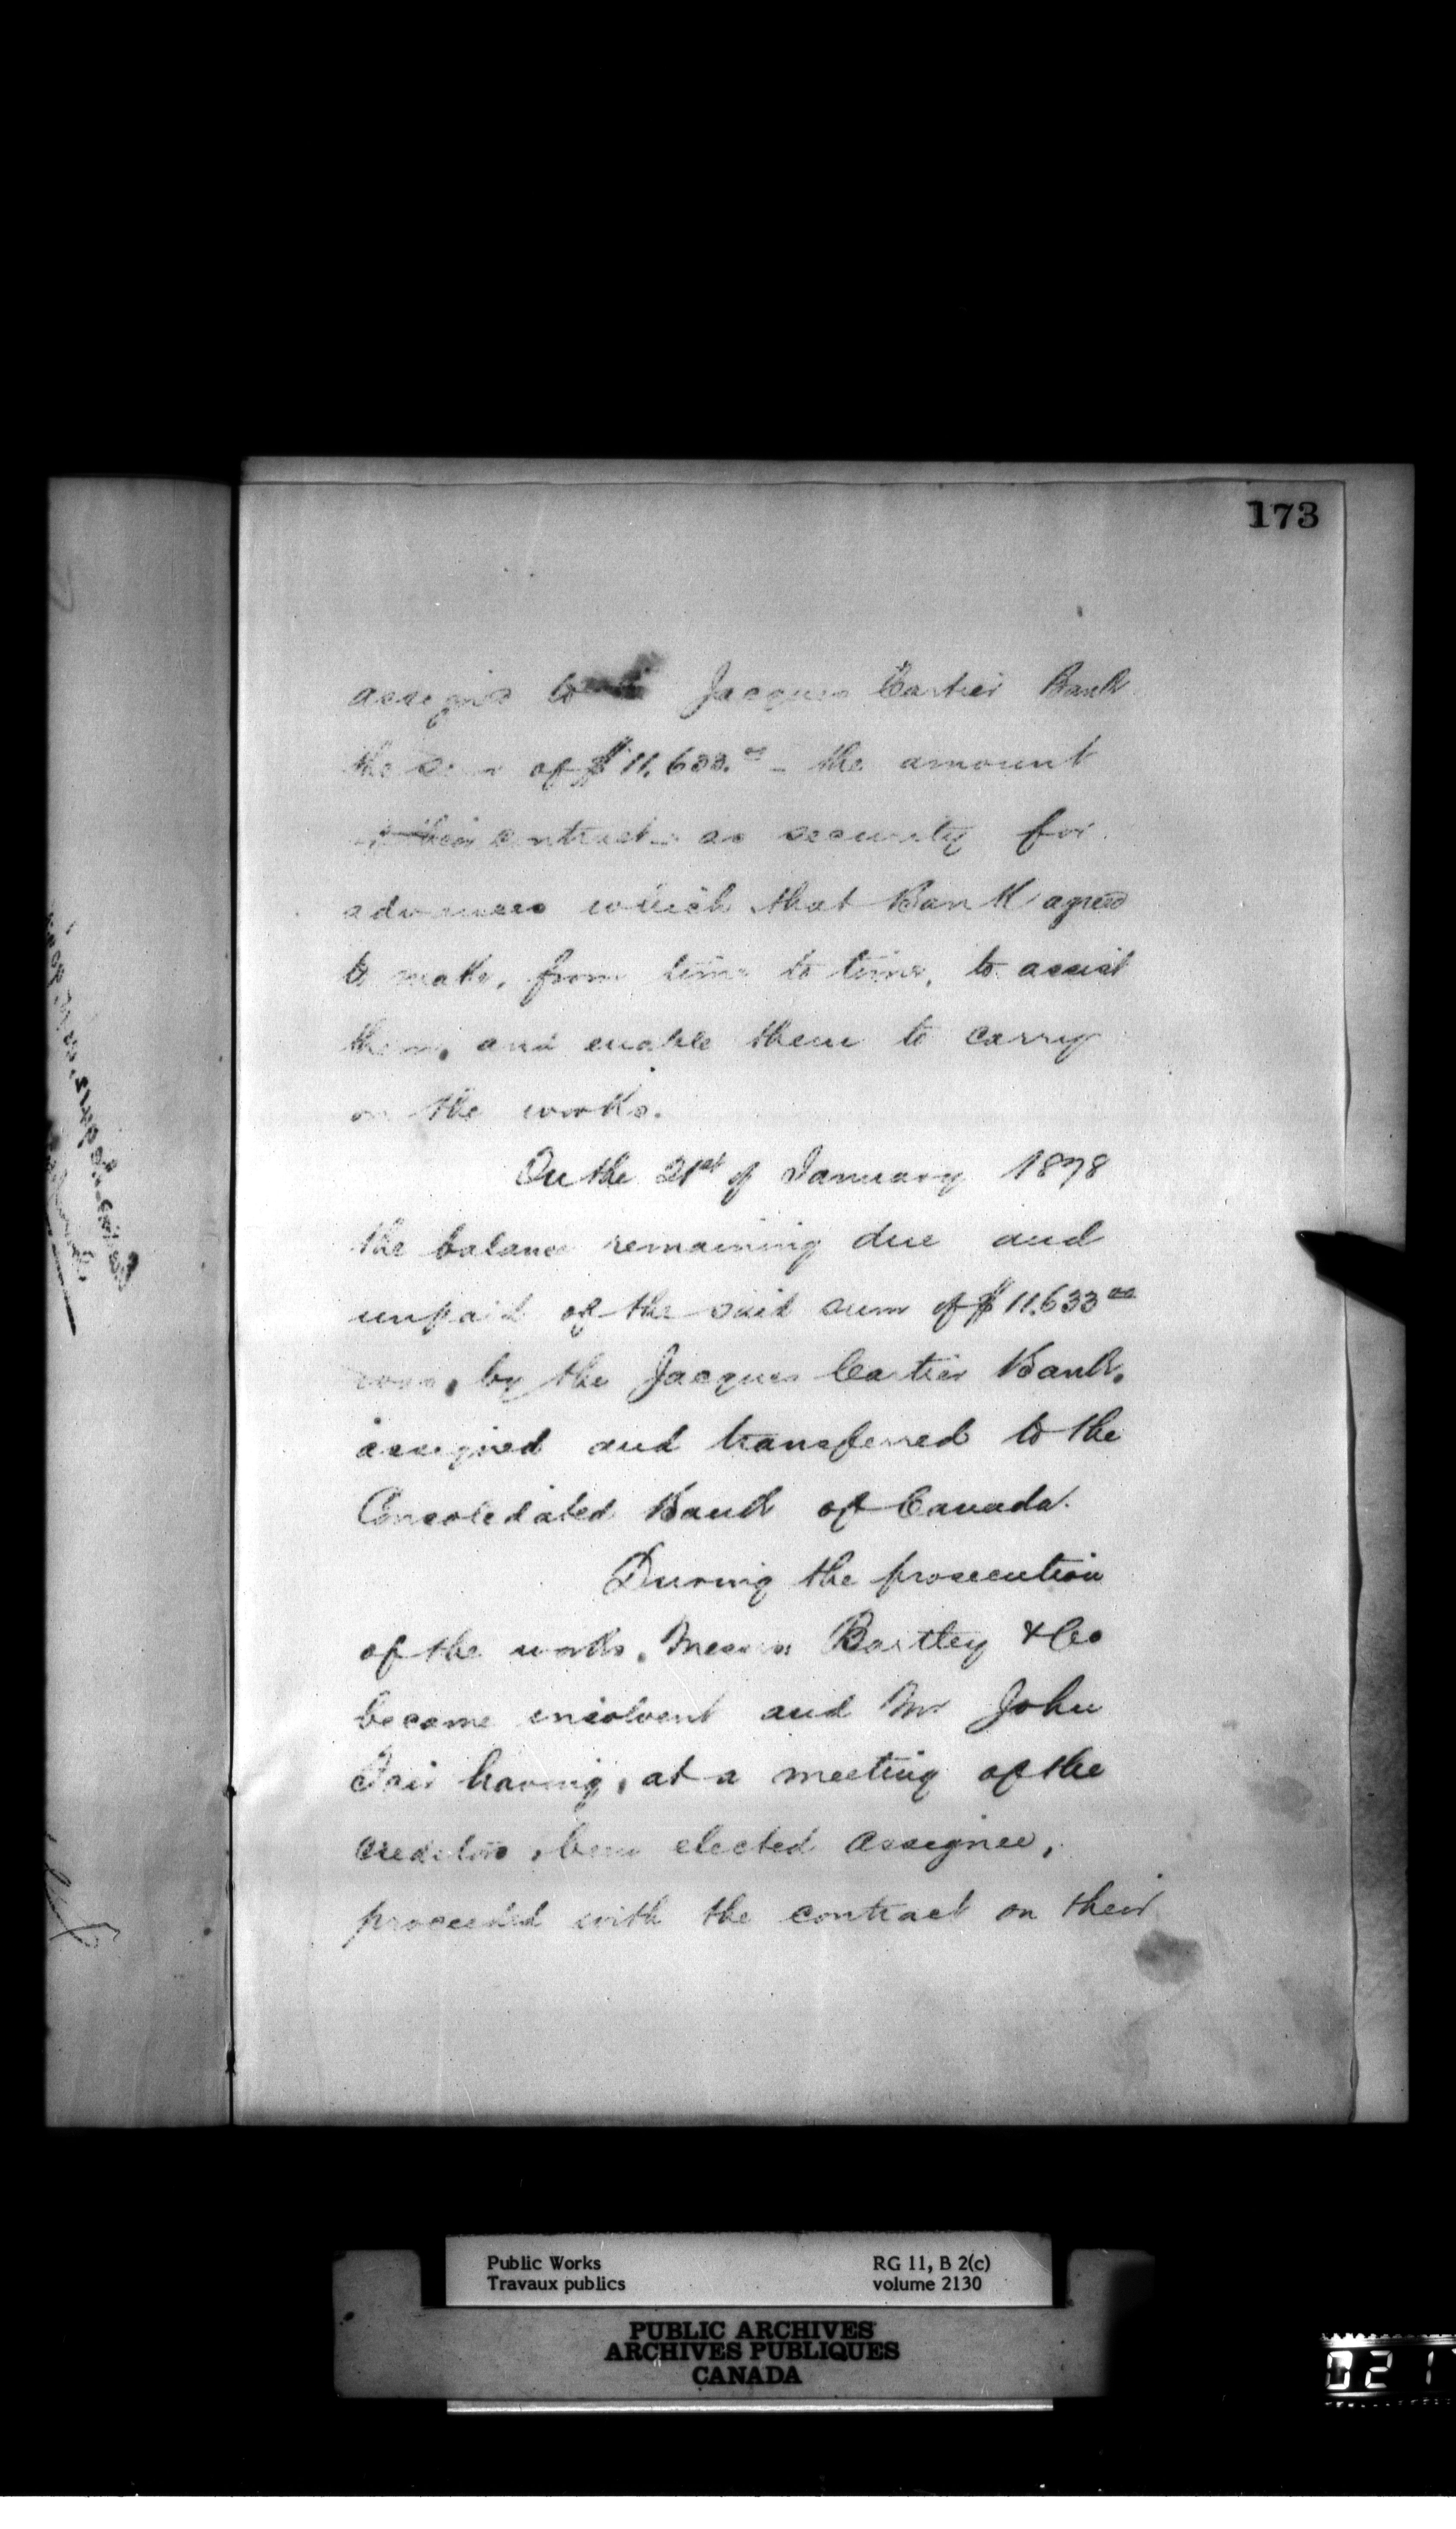 173
assigns to Jacques Cartier Bank
the sum of $11,633.00 - the amount
of their contract - as security for
advances which that Bank agreed
to make, from time to time, to assist
them, and enable them to carry
on the works.
On the 21st of January 1878
the balance remaining due and
unpaid of the said sum of $11,633 00
was, by the Jacques Cartier Bank,
assigned and transferred to the
Consolidated Bank of Canada.
During the prosecution
of the works, Messrs Bartley & Co
became insolvent and Mr John
Fair having, at a meeting of the
creditors, been elected Assignee,
proceeded with the contract on their
Public Works
Travaux publics
RG 11, B 2(c)
volume 2130
PUBLIC ARCHIVES
ARCHIVES PUBLIQUES
CANADA
021